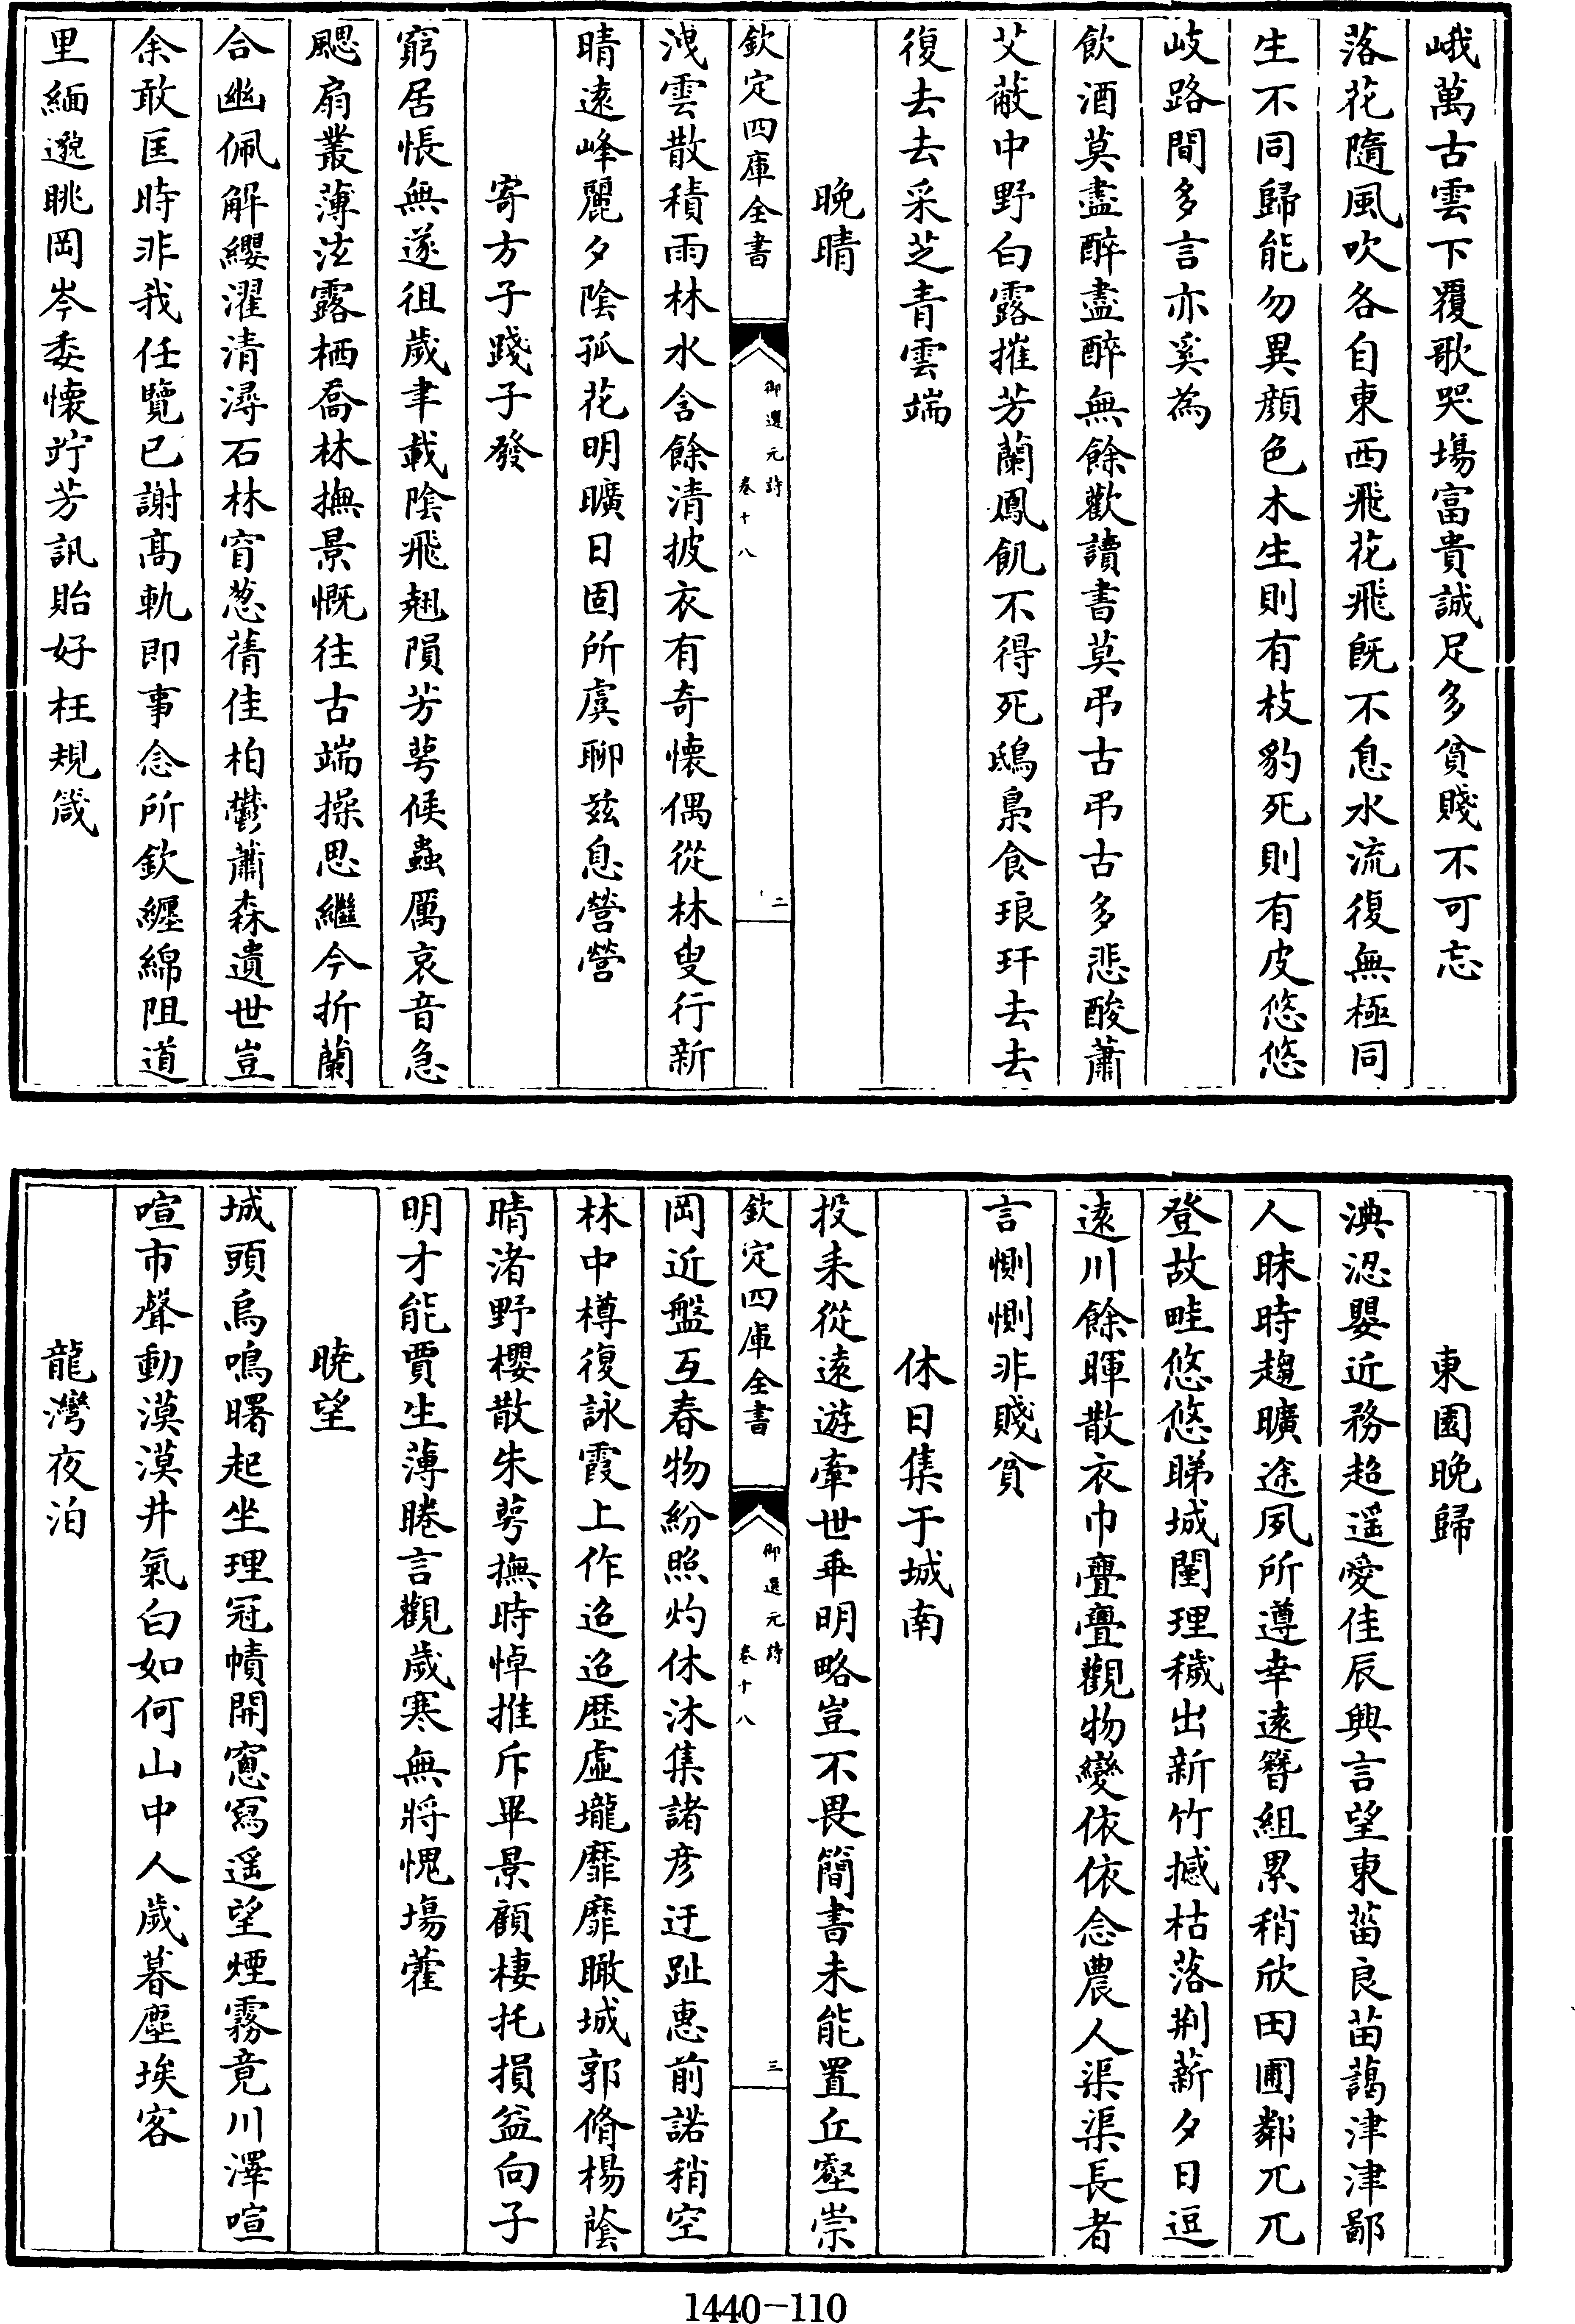 峨萬古雲下覆歌哭場富貴誠足多貧賤不可忘
落花隨風吹各自東西飛花飛既不息水流復無極同
生不同歸能勿異顔色木生則有枝豹死則有皮悠悠
岐路間多言亦奚為
飲酒莫盡醉盡醉無餘歡讀書莫弔古弔古多悲酸蕭
艾蔽中野白露摧芳蘭鳳飢不得死鴟梟食琅玕去去
復去去采芝青雲端
晚晴
欽定四庫全書
御選元詩
卷十八
二
洩雲散積雨林水含餘清披衣有奇懷偶從林叟行新
晴遠峰麗夕陰孤花明曠日固所虞聊兹息營營
寄方子踐子發
窮居悵無遂徂歲聿載陰飛翹隕芳萼候蟲厲哀音急
颸扇叢薄泫露栖喬林撫景慨往古端操思繼今折蘭
合幽佩解纓濯清潯石林窅葱蒨佳柏鬱蕭森遺世豈
余敢匡時非我任覽已謝髙軌即事念所欽纒綿阻道
里緬邈眺岡岑委懐竚芳訊貽好枉規箴
東園晚歸
淟涊嬰近務超遥愛佳辰興言望東菑良苗藹津津鄙
人昧時趨曠途夙所遵幸遠簪組累稍欣田圃鄰兀兀
登故畦悠悠睇城闉理穢出新竹撼枯落荆薪夕日逗
遠川餘暉散衣巾亹亹觀物變依依念農人渠渠長者
言惻惻非賤貧
休日集于城南
投耒從遠遊牽世乖明略豈不畏簡書未能置丘壑崇
欽定四庫全書
御選元詩
卷十八
三
岡近盤互春物紛照灼休沐集諸彦迂趾惠前諾稍空
林中樽復詠霞上作迢迢歴虛壠靡靡瞰城郭脩楊蔭
晴渚野櫻散朱萼撫時悼推斥畢景顧棲托損益向子
明才能賈生薄睠言觀歲寒無將愧場藿
曉望
城頭烏鳴曙起坐理冠幘開窻寫遥望煙霧竟川澤喧
喧市聲動漠漠井氣白如何山中人歲暮塵埃客
龍灣夜泊
1440-110